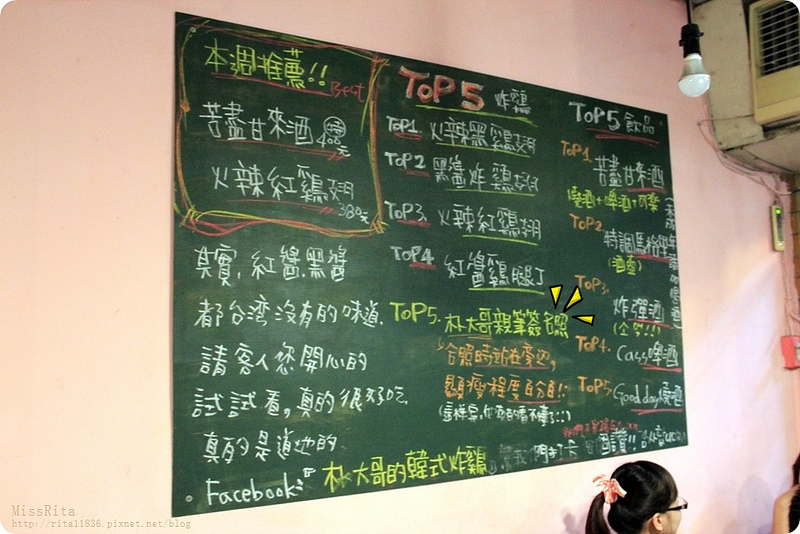 本週推薦!!
Best
苦盡甘來酒
400元
火辣紅鷄翅
380元
其實, 紅醬.黑醬
都台湾沒有的味道.
請客人您開心的
試試看,真的很好吃.
真的是道地的.
Facebook:
朴大哥的韓式炸鷄
TOP5 炸鷄
TOP1. 火辣黑鷄翅
TOP2 黑醬炸鷄翅
TOP3. 火辣紅鷄翅
TOP4 紅醬鷄腿丁
TOP5. 朴大哥親筆簽名照
合照時站在旁边,
顯瘦程度百分百!!
TOP5 飲品
TOP1.
苦盡甘來酒
(燒酒+啤酒+可樂
TOP2
特調馬格利
(酒壺)
TOP3.
炸彈酒
TOP4.
Cass啤酒
TOP5
Good day燒酒
打卡
個讚!!
MissRita
http://rita11836.pixnet.net/blog